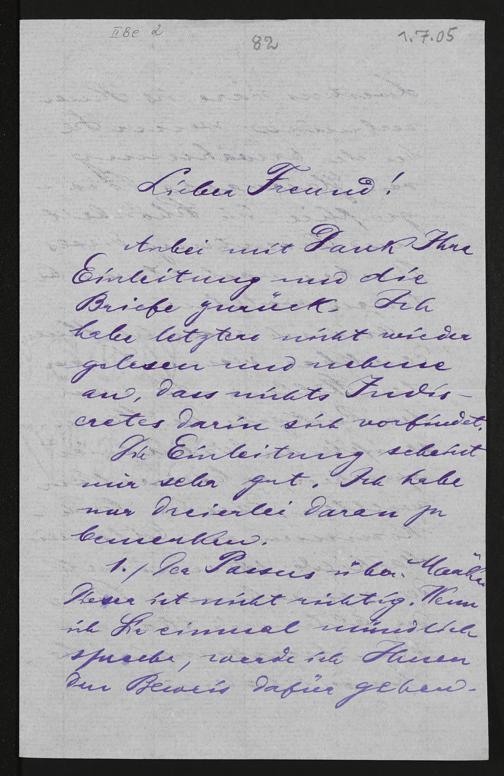 IIBe 2
82
1.7.05
Lieber Freund!
Anbei mit Dank Ihre
Einleitung und die
Briefe zurück. Ich
habe letztere nicht wieder
gelesen und nehme
an, dass nichts Indis-
cretes darin sich vorfindet.
Die Einleitung scheint
mir sehr gut. Ich habe
nur dreierlei daran zu
bemerken.
1./ Der Passus über
Dieser ist nicht richtig. Wenn
ich Sie einmal mündlich
spreche, werde ich Ihnen
den Beweis dafür geben.